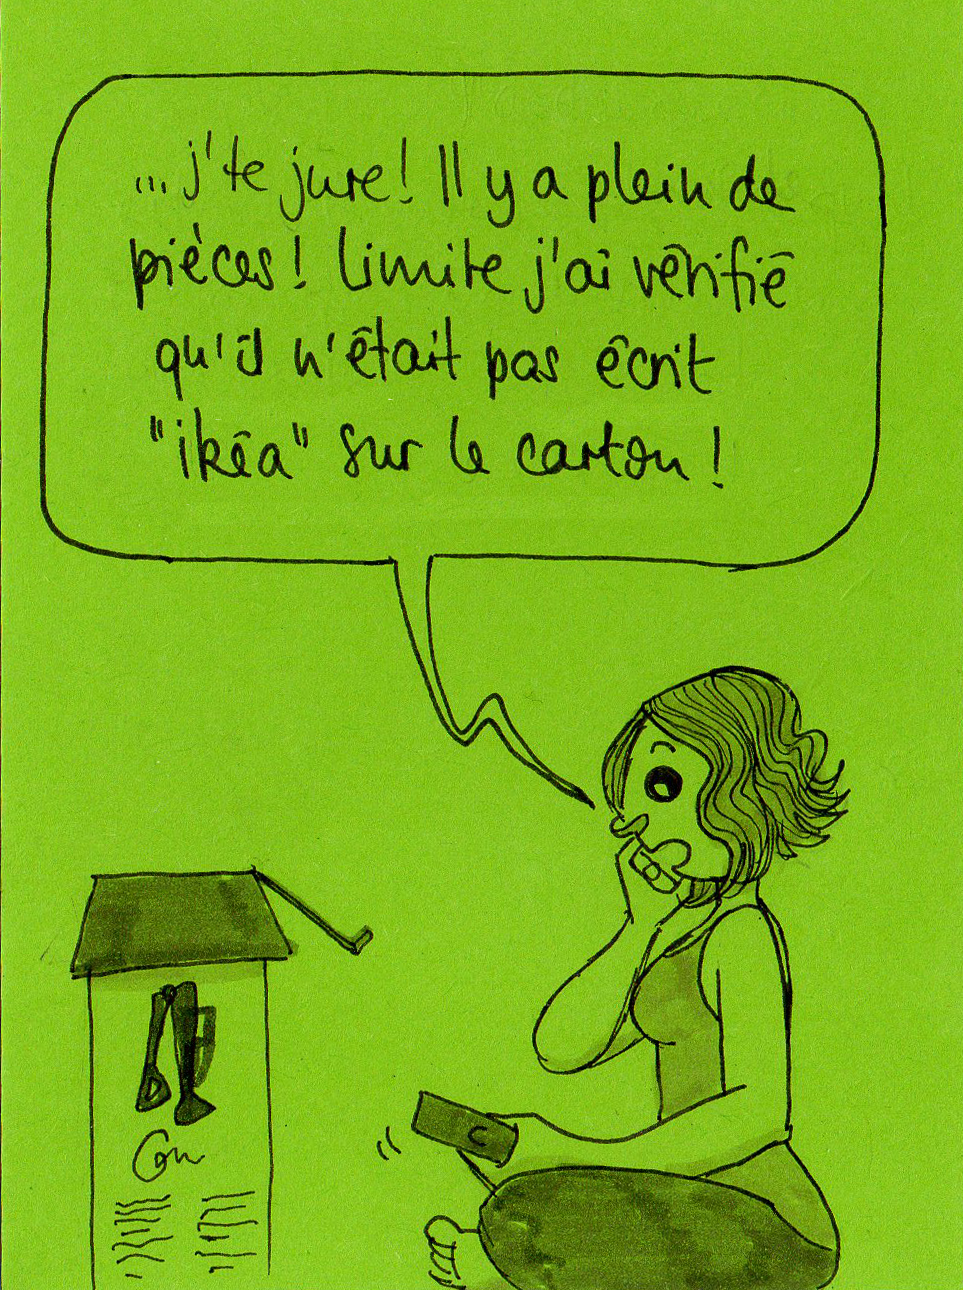 ...j'te jure! Il y a plein de
pièces! Limite j'ai vérifié
qu'il n'était pas écrit
"ikéa" sur le carton!